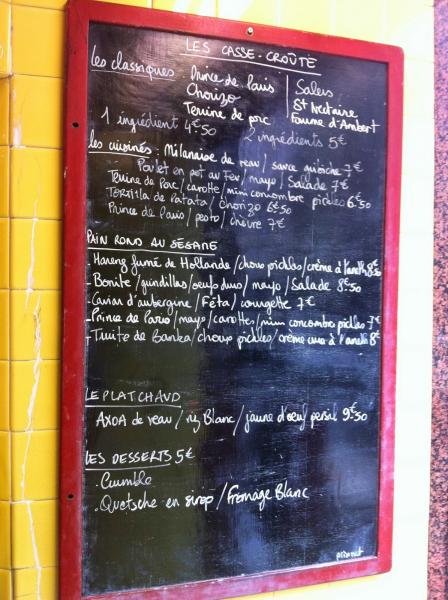 LES CASSE-CROÛTE
les classiques : Prince de Paris | Salers
Chorizo | St Nectaire
Terrine de porc | Fourme d'Ambert
1 ingrédient 4€50
2 ingrédients 5€
les cuisinés : Milanaise de veau / sauce gribiche 7€
Poulet en pot au Feu / mayo / Salade 7€
Terrine de Porc / carotte / mini concombre pickles 6€50
TORTILLA de Patata / Chorizo 6€50
Prince de Paris / pesto / chèvre 7€
PAIN ROND AU SÉSAME
- Hareng fumé de Hollande / choux pickles / crème à l'aneth 8€50
- Bonite / guindillas / oeufs durs / mayo / Salade 8€50
- Caviar d'aubergine / Féta / courgette 7€
- Prince de Paris / mayo / carottes / mini concombre pickles 7€
- Truite de Banka / choux pickles / crème crue à l'aneth 8€
LE PLAT CHAUD
AXOA de veau / riz Blanc / jaune d'oeuf persil 9€50
LES DESSERTS 5€
. Crumble
. Quetsche en sirop / Fromage Blanc